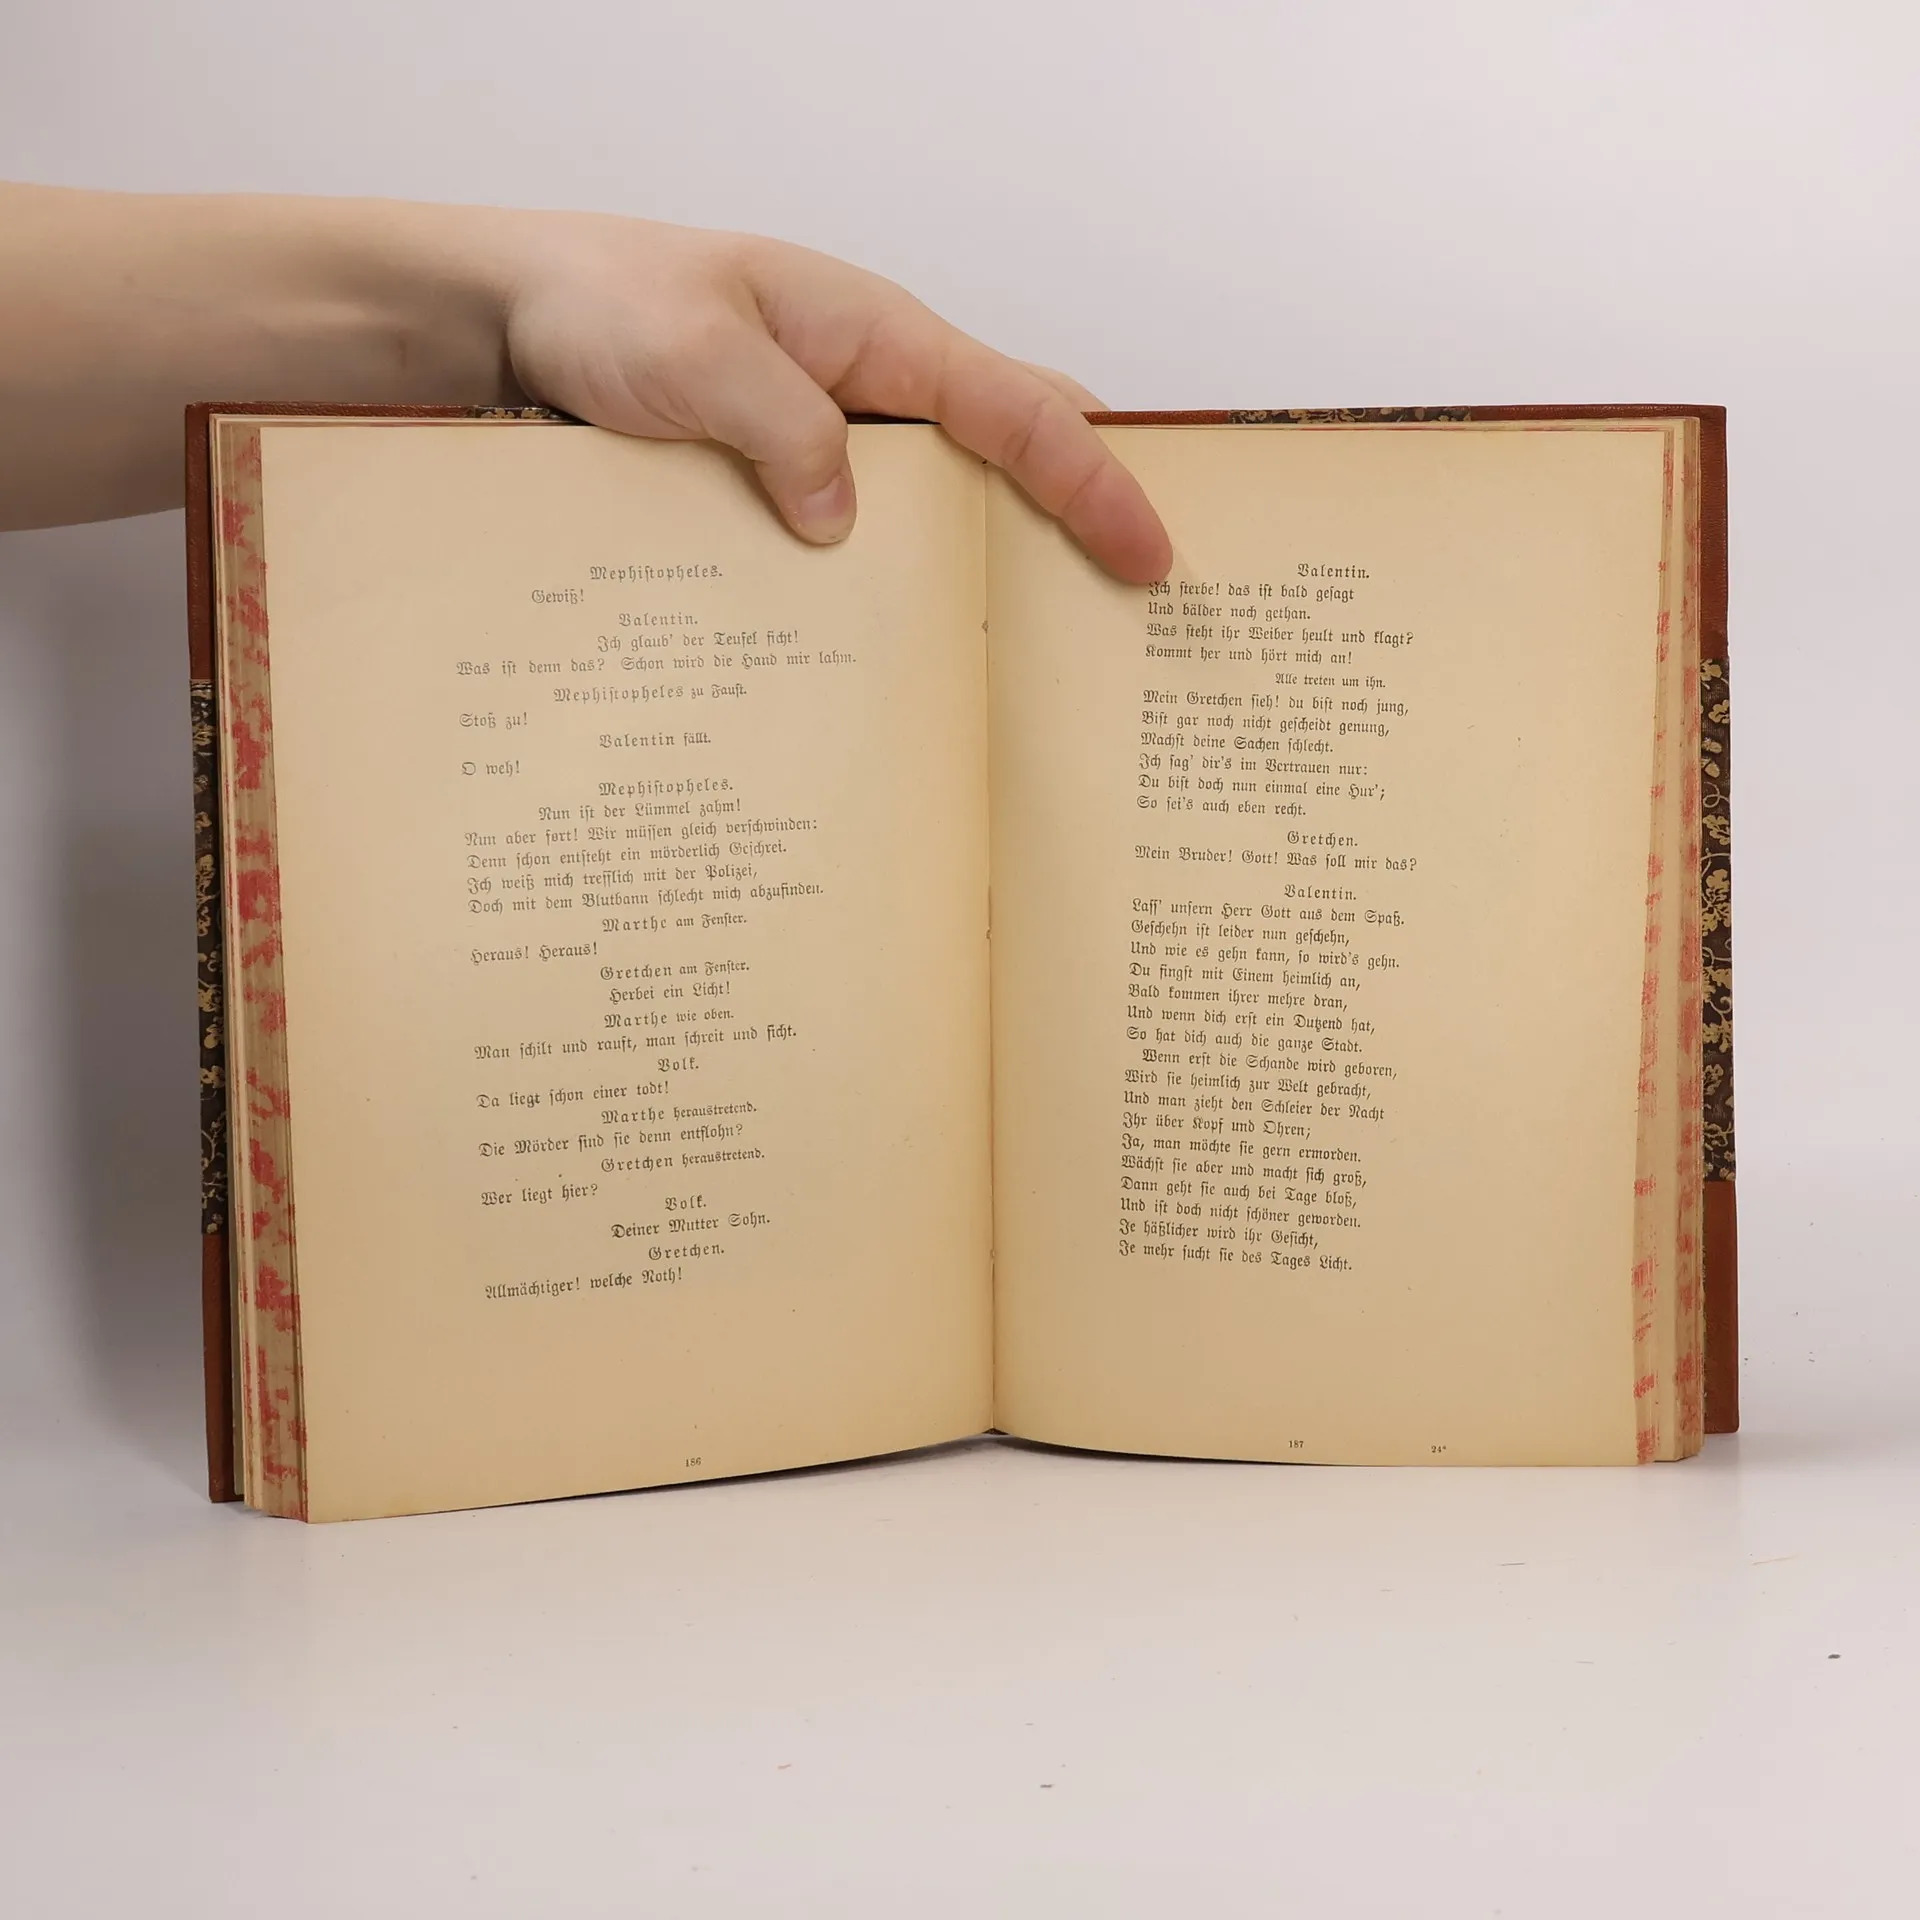 Mephistopheles.
Gewiß!
Valentin.
Ich glaub' der Teufel ficht!
Was ist denn das? Schon wird die Hand mir lahm.
Mephistopheles zu Faust.
Stoß zu!
Valentin fällt.
O weh!
Mephistopheles.
Nun ist der Lümmel zahm!
Nun aber fort! Wir müssen gleich verschwinden:
Denn schon entsteht ein mörderlich Geschrei.
Ich weiß mich trefflich mit der Polizei,
Doch mit dem Blutbann schlecht mich abzufinden.
Marthe am Fenster.
Heraus! Heraus!
Gretchen am Fenster.
Herbei ein Licht!
Marthe wie oben.
Man schilt und rauft, man schreit und ficht.
Volk.
Da liegt schon einer todt!
Marthe heraustretend.
Die Mörder sind sie denn entflohn?
Gretchen heraustretend.
Wer liegt hier?
Volk.
Deiner Mutter Sohn.
Gretchen.
Allmächtiger! welche Noth!
186
Valentin.
Ich sterbe! das ist bald gesagt
Und bälder noch gethan.
Was steht ihr Weiber heult und klagt?
Kommt her und hört mich an!
Alle treten um ihn.
Mein Gretchen sieh! du bist noch jung,
Bist gar noch nicht gescheidt genung,
Machst deine Sachen schlecht.
Ich sag' dir's im Vertrauen nur:
Du bist doch nun einmal eine Hur';
So sei's auch eben recht.
Gretchen.
Mein Bruder! Gott! Was soll mir das?
Valentin.
Lass' unsern Herr Gott aus dem Spaß.
Geschehn ist leider nun geschehn,
Und wie es gehn kann, so wird's gehn.
Du fingst mit Einem heimlich an,
Bald kommen ihrer mehre dran,
Und wenn dich erst ein Dutzend hat,
So hat dich auch die ganze Stadt.
Wenn erst die Schande wird geboren,
Wird sie heimlich zur Welt gebracht,
Und man zieht den Schleier der Nacht
Ihr über Kopf und Ohren;
Ja, man möchte sie gern ermorden.
Wächst sie aber und macht sich groß,
Dann geht sie auch bei Tage bloß,
Und ist doch nicht schöner geworden.
Je häßlicher wird ihr Gesicht,
Je mehr sucht sie des Tages Licht.
187
24*